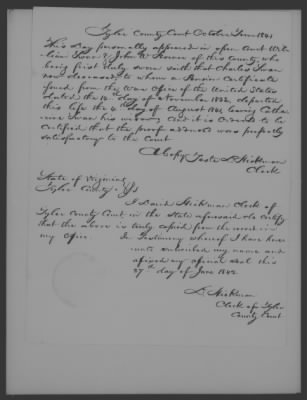 Tyler County Court October Term 1841
This day personally appeared in open Court Wil-
liam Swan & John W. of this County, who
being first duly sworn saith that Charles Swan
now deceased, to whom a Pension Certificate
from the War Office of the United States
dated the 14 day of November 1832, departed
this life the 4th day of August 1841 leaving Cathe
rine Swan his widow, And it is Ordered to be
Certified that the proof adduced was perfectly
satisfactory to the Court
A Copy Teste D Hickman
Clerk
State of Virginia
Tyler County
I David Hickman Clerk of
Tyler County Court in the State aforesaid do Certify
that the above is truly copied from the record in
my Office. In Testimony whereof I have here
unto subscribed my name and
affixed my official seal this
27th day of June 1842.
D. Hickman
Clerk of Tyler
County Court